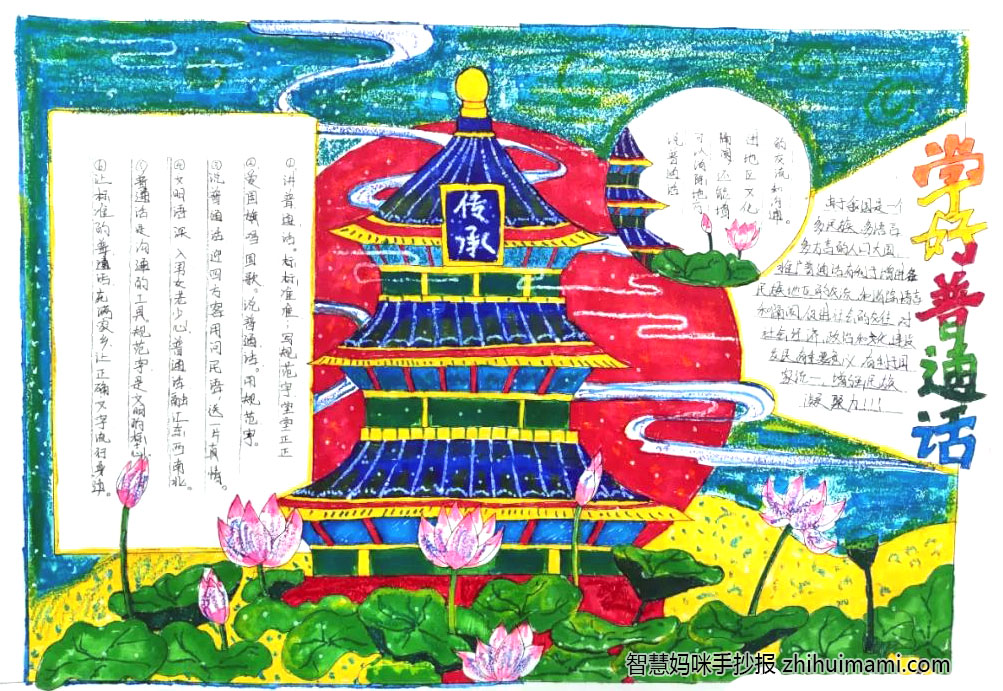 学好普通话
由于我国是一个
多民族、多语言、
多方言的人口大国,
推广普通话有利于增进各
民族地区的交流
社会经济、政治和文化建设
民族
凝聚力!!!
的交流和沟通。
进地区文化
说普通话
传承
①讲普通话。标标准准;写规范字堂堂正正
②爱国旗唱国歌。说普通话。用规范字。
③说普通话迎四方客用问民语送一片真情。
④文明语深入男女老少心,普通话融汇东西南北。
⑤普通话是沟通的工具规范字是文明的标
⑥让标准的普通话充满家乡让正确文字流行身边。
智慧妈咪手抄报 zhihuimami.com